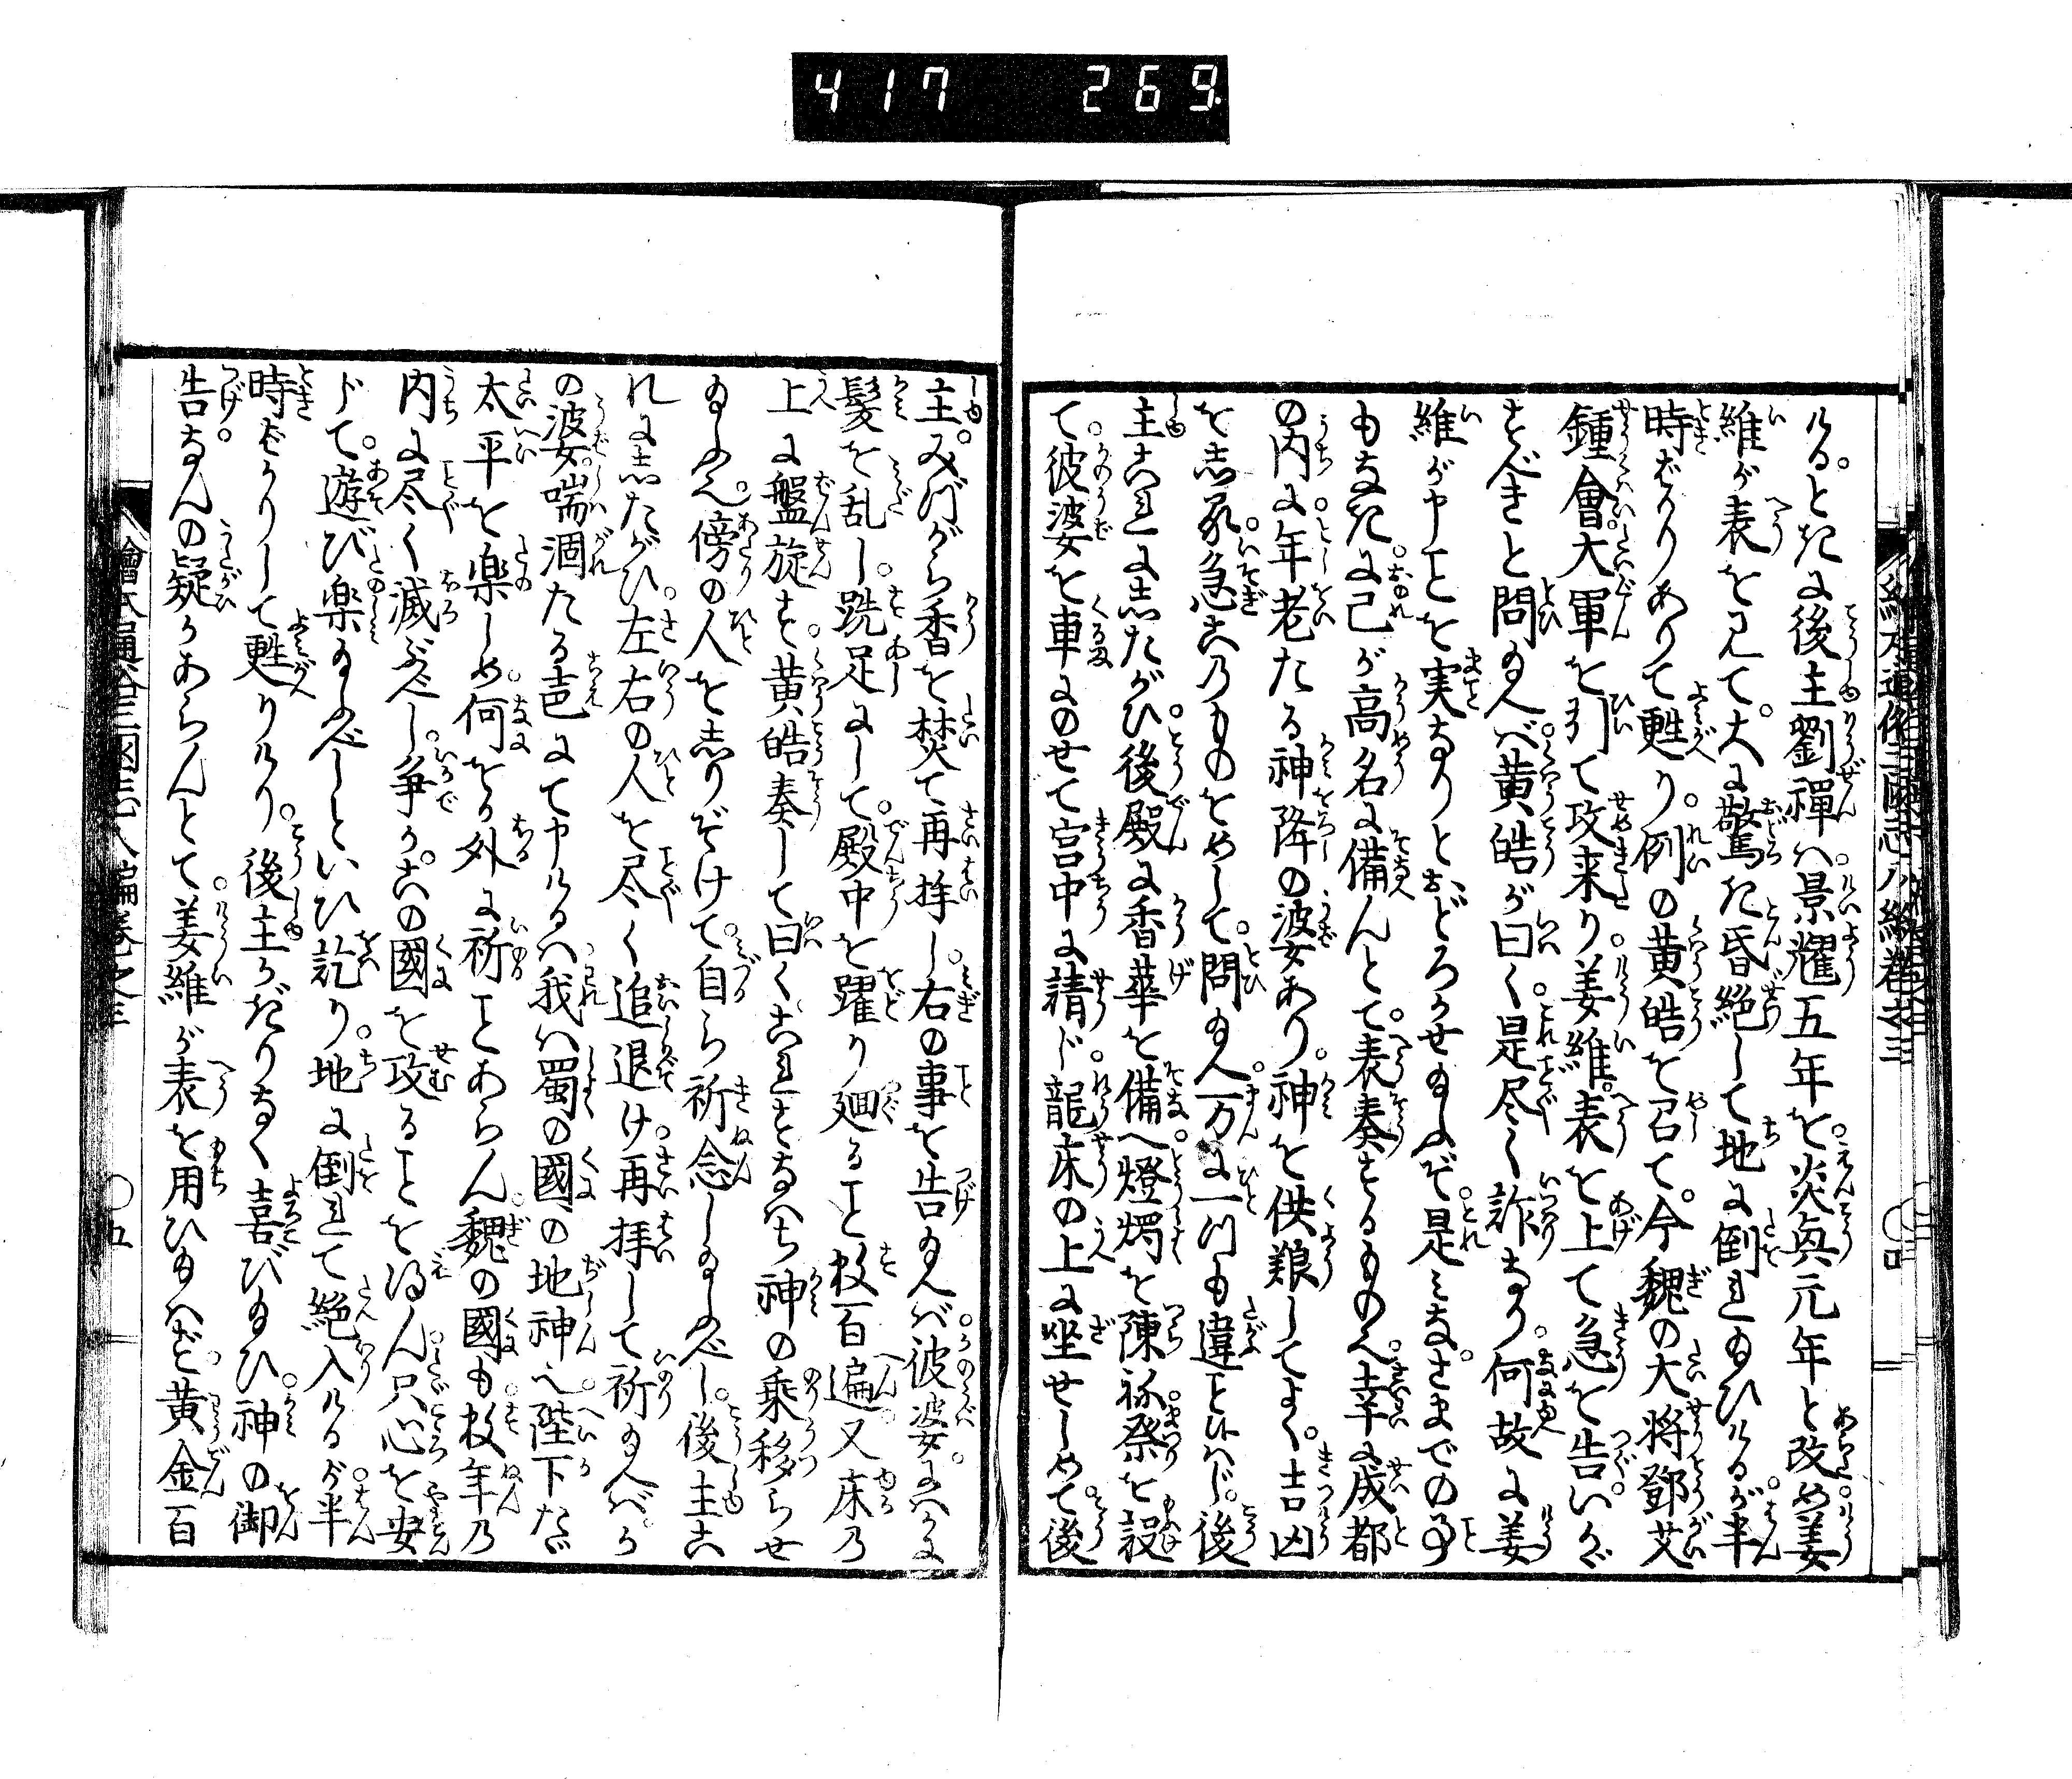 417 269
ける。ときに後主劉禅ハ。景耀五年を。炎興元年と改め。姜
維が表を見て。大に驚き昏絶して地に倒れ給ひけるが。半
時ばかりありて甦り。例の黄皓を召て。今魏の大将鄧艾
鍾會。大軍を引て攻来り。姜維。表を上て急を告。いかゞ
すべきと問給へバ。黄皓が曰く。是尽く詐なり。何故に姜
維が申ことを実なりとおどろかせ給ふぞ。是ミな。さまでの事
もなきに。己が高名に備んとて。表奏するもの也。幸に成都
の内に。年老たる神降の婆あり。神を供養してよく。吉凶
を志る。急ぎこのものをめして。問給へ。万に一ツも違ことハあらじ。後
主これに志たがひ。後殿に香華を備へ。燈燭を陳ね。祭を設
て。彼婆を車にのせて宮中に請じ。龍床の上に坐せしめて。後
主。みづから香を焚て再拝し。右の事を告給へバ。彼婆。にハかに
髪を乱し。跣足にして。殿中を躍り廻ること数百遍。又床の
上に盤旋す。黄皓奏して曰く。これすなハち神の乗移らせ
給ふ也。傍の人を志りぞけて。自ら祈念し給ふべし。後主こ
れに志たがひ。左右の人を尽く追退け。再拝して祈り給へバ。か
の婆。喘涸たる声にて申けるハ。我ハ蜀の國の地神也。陛下たゞ
太平を楽しめ。何をか外に祈ことあらん。魏の國も。数年の
内に尽く滅ぶべし。争か。この國を攻ることを得ん。只心を安
じて。遊び楽み給ふべしといひ訖り。地に倒れて絶入けるが。半
時ばかりして甦りけり。後主かぎりなく喜び給ひ。神の御
告。なんの疑かあらんとて。姜維が表を用ひ給ハず。黄金百
繪本通俗三国志八編巻之三 ○五